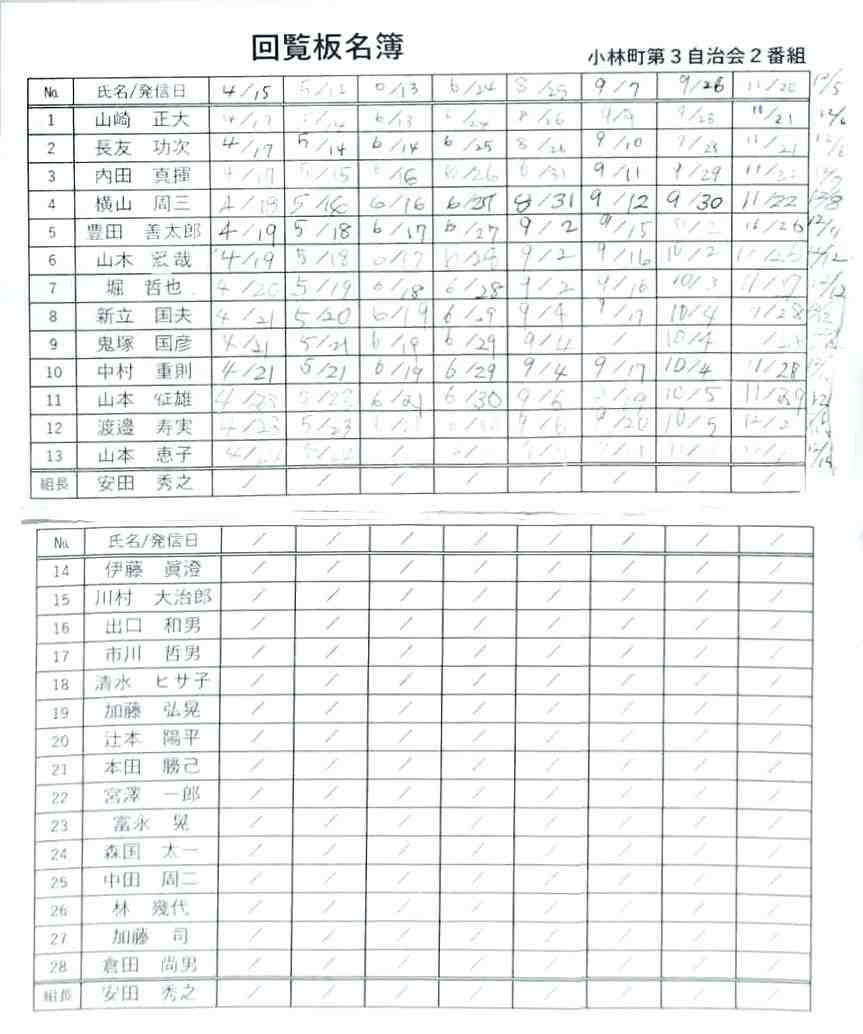 回覧板名簿
小林町第3自治会2番組
№ 氏名/発信日 4/15 5/12 6/13 6/24 8/25 9/7 9/26 11/20 12/5
1 山崎 正大 4/17 5/14 6/13 6/24 8/26 9/9 9/28 11/21 12/6
2 長友 功次 4/17 5/14 6/14 6/25 8/26 9/10 9/28 11/21 12/6
3 内田 真揮 4/17 5/15 6/16 6/26 8/31 9/11 9/29 11/22
4 横山 周三 4/18 5/16 6/16 6/27 8/31 9/12 9/30 11/22
5 豊田 善太郎 4/19 5/18 6/17 6/27 9/2 9/15 11/26 12/11
6 山本 宏哉 4/19 5/18 6/17 6/28 9/2 9/16 10/2 11/26 12/12
7 堀 哲也 4/20 5/19 6/18 6/28 9/2 9/16 10/3 11/27 12/12
8 新立 国夫 4/21 5/20 6/19 6/29 9/4 9/17 10/4 11/28
9 鬼塚 国彦 4/21 5/21 6/19 6/29 9/4 10/4
10 中村 重則 4/21 5/21 6/19 6/29 9/4 9/17 10/4 11/28
11 山本 征雄 4/23 5/23 6/21 6/30 9/6 10/5 11/29
12 渡邊 寿実 4/23 5/23 9/6 9/20 10/5 12/2
13 山本 恵子
組長 安田 秀之 / / / / / / / /
№ 氏名/発信日 / / / / / / / /
14 伊藤 眞澄 / / / / / / / /
15 川村 大治郎 / / / / / / / /
16 出口 和男 / / / / / / / /
17 市川 哲男 / / / / / / / /
18 清水 ヒサ子 / / / / / / / /
19 加藤 弘晃 / / / / / / / /
20 辻本 陽平 / / / / / / / /
21 本田 勝己 / / / / / / / /
22 宮澤 一郎 / / / / / / / /
23 富永 晃 / / / / / / / /
24 森国 太一 / / / / / / / /
25 中田 周二 / / / / / / / /
26 林 幾代 / / / / / / / /
27 加藤 司 / / / / / / / /
28 倉田 尚男 / / / / / / / /
組長 安田 秀之 / / / / / / / /